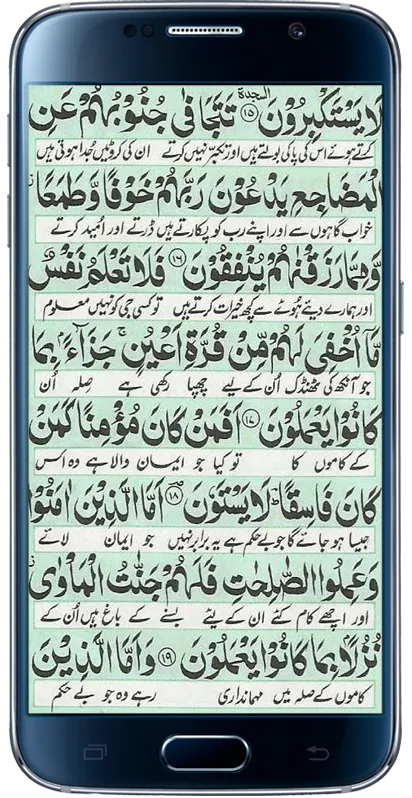 لَا يَسْتَكْبِرُوْنَ ۝۱۵ السجدة تَتَجَافٰى جُنُوْبُهُمْ عَنِ
کرتے ہوئے اس کی پاکی بولتے ہیں اور تکبر نہیں کرتے ان کی کروٹیں جدا ہوتی ہیں
الْمَضَاجِعِ يَدْعُوْنَ رَبَّهُمْ خَوْفًا وَّطَمَعًا
خواب گاہوں سے اور اپنے رب کو پکارتے ہیں ڈرتے اور امید کرتے
وَّمِمَّا رَزَقْنٰهُمْ يُنْفِقُوْنَ ۝۱۶ فَلَا تَعْلَمُ نَفْسٌ
اور ہمارے دیئے ہوئے سے کچھ خیرات کرتے ہیں تو کسی جی کو نہیں معلوم
مَّاۤ اُخْفِيَ لَهُمْ مِّنْ قُرَّةِ اَعْيُنٍ ۚ جَزَآءًۢ بِمَا
جو آنکھ کی ٹھنڈک اُن کے لیے چھپا رکھی ہے صلہ اُن
كَانُوْا يَعْمَلُوْنَ ۝۱۷ اَفَمَنْ كَانَ مُؤْمِنًا كَمَنْ
کے کاموں کا تو کیا جو ایمان والا ہے وہ اس
كَانَ فَاسِقًا ؕ لَا يَسْتَوٗنَ ۝۱۸ اَمَّا الَّذِيْنَ اٰمَنُوْا
جیسا ہو جائے گا جو بے حکم ہے یہ برابر نہیں جو ایمان لائے
وَعَمِلُوا الصّٰلِحٰتِ فَلَهُمْ جَنّٰتُ الْمَاْوٰى
اور اچھے کام کئے ان کے لیئے بسنے کے باغ ہیں اُن کے
نُزُلًۢا بِمَا كَانُوْا يَعْمَلُوْنَ ۝۱۹ وَاَمَّا الَّذِيْنَ
کاموں کے صلہ میں مہمانداری رہے وہ جو بے حکم